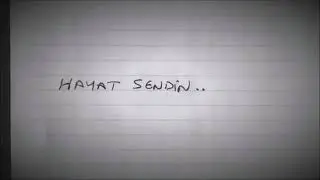 HAYAT SENDİN..